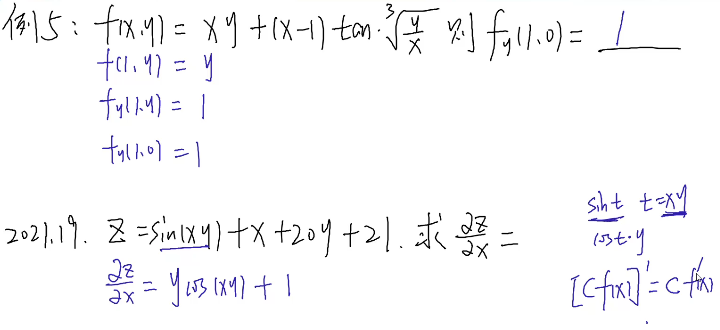 例5: f(x,y) = xy + (x-1) tan·∛(y/x) 则 f_y(1,0) = 1
f(1,y) = y
f_y(1,y) = 1
f_y(1,0) = 1
2021.19. Z = sin(xy) + x + 20y + 21. 求 ∂z/∂x =
∂z/∂x = y cos(xy) + 1
sin t t = xy
cos t · y
[C f(x)]' = C f'(x)